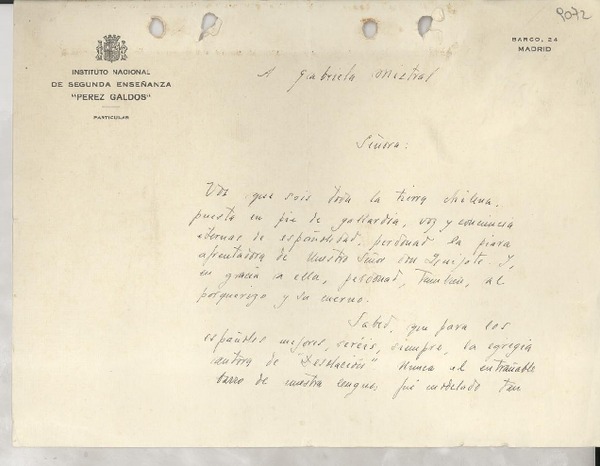 9072
BARCO, 24
MADRID
INSTITUTO NACIONAL
DE SEGUNDA ENSEÑANZA
"PEREZ GALDOS"
PARTICULAR
A Gabriela Mistral
Señora:
Vos que sois toda la tierra chilena,
puesta en pie de gallardía, voz y conciencia
eternas de españolidad, perdonad la piara
afrentadora de Nuestro Señor Don Quijote. Y,
en gracia a ella, perdonad, también, al
porquerizo y su cuerno.
Sabed, que para los
españoles mejores, seréis, siempre, la egregia
cantora de "Desolación". Nunca el entrañable
barro de nuestra lengua, fué modelado tan